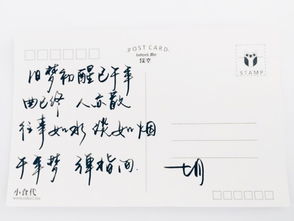 POST CARD
旧梦初醒已千年
曲已终 人亦散
往事如水 淡如烟
千年梦 弹指间
七月
STAMP
小食代